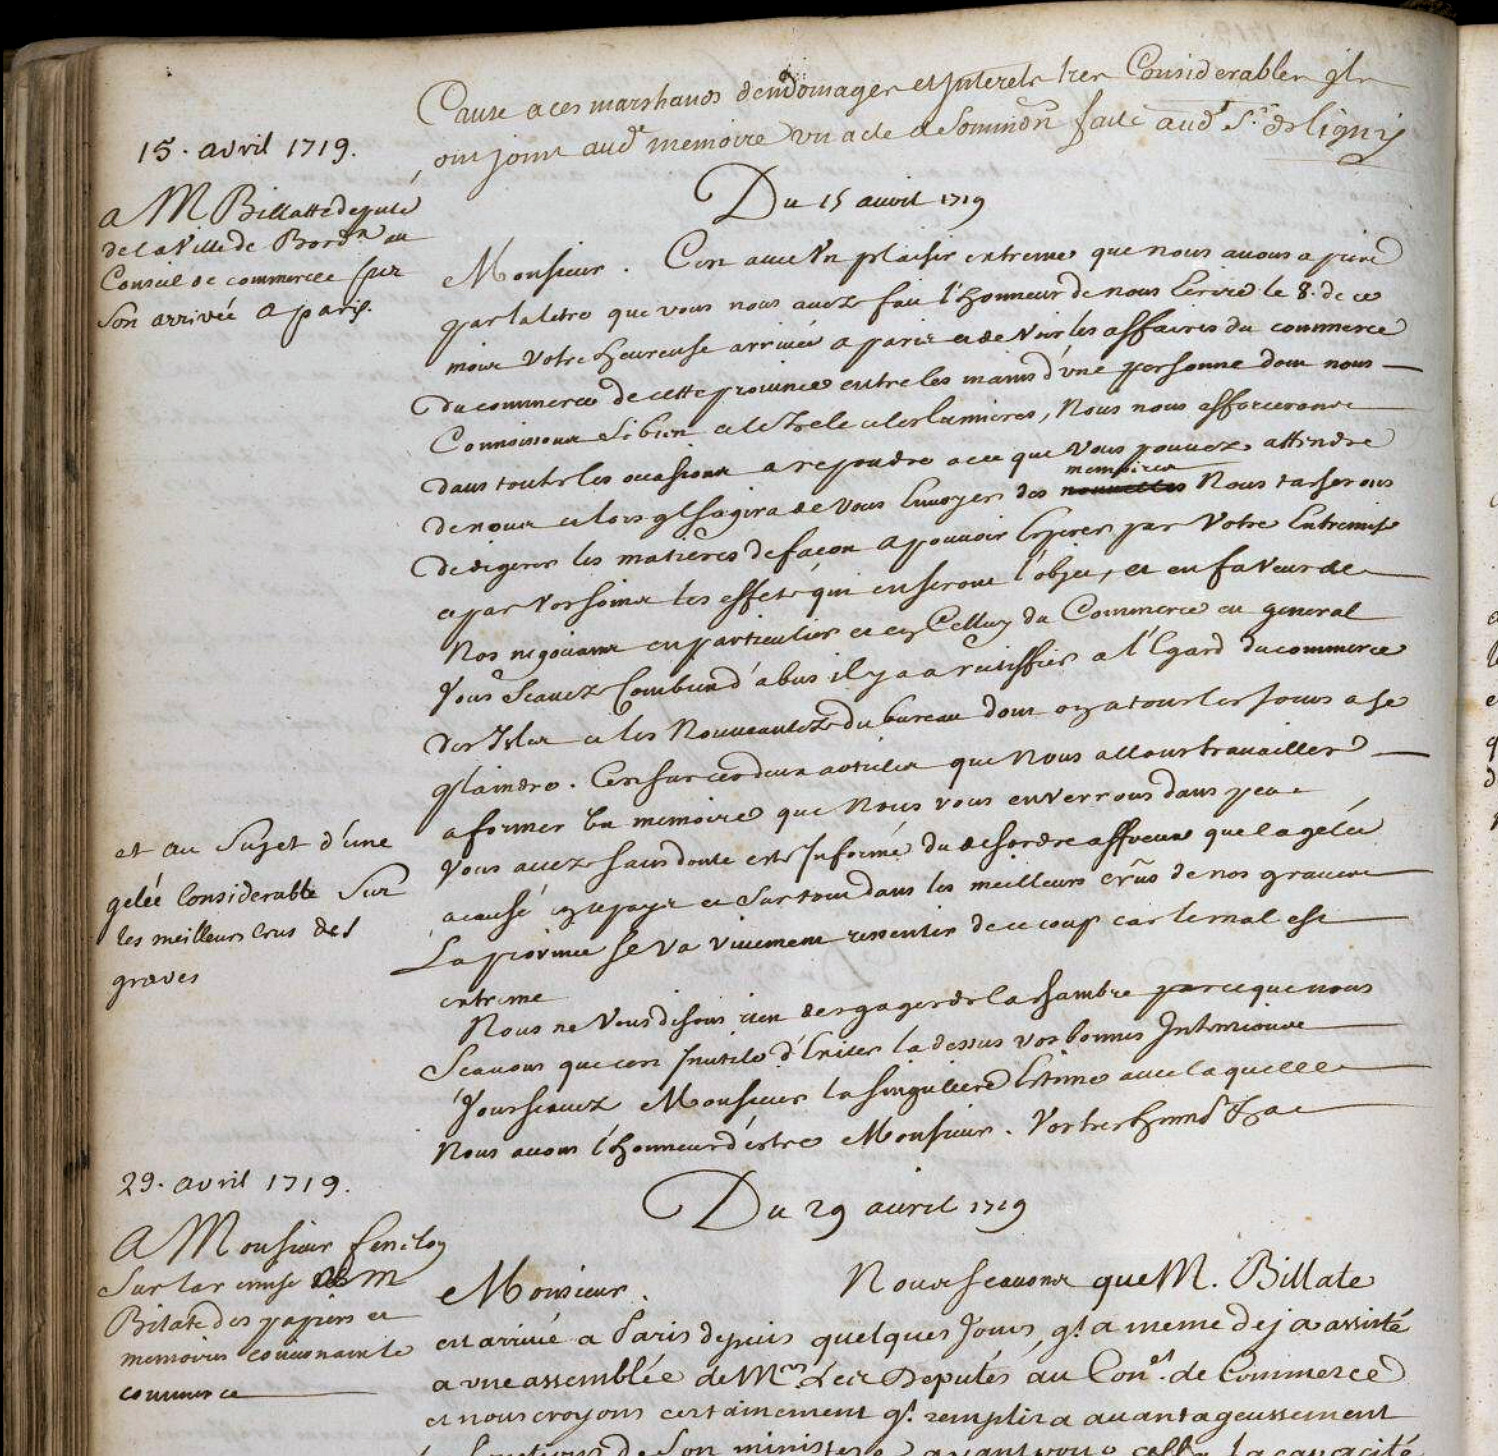 Cause a ces marchands dendomages et Interets tres Considerables ils
ont joint aud. memoire un acte de Sommon faite aud. Sr. de ligny
15. avril 1719.
Du 15 auril 1719
a M Billatte deputé
de la Ville de Bordx au
Conseil de commerce sur
Son arrivée a paris.
Monsieur. C'en auec Un plaisir extreme que nous auons apris
par la letre que vous nous auez fait l'honneur de nous Ecrire le 8. de ce
mois Votre heureuse arriuée a paris et de Voir les affaires du commerce
du commerce de cette prouince entre les mains d'une personne dont nous
Connoissons si bien et le Zele et les lumieres, Nous nous efforcerons
dans toutes les occasions a repondre a ce que Vous pouuez attendre
de nous et lors ql sagira de Vous Enuoyer des nouuelles memoires Nous tascherons
de digerer les matieres de facon a pouuoir Esperer par Votre Entremise
et par Vos soins les effets qui en seront l'objet, et en faveur de
Nos negocians en particulier et en Celluy du Commerce en general
Vous Scauez Combien d'abus il y a a rectiffier a l'Egard du commerce
des Isles et les Nouueautez du bureau dont on a tous les Jours a se
plaindre. C'en sur ces deux articles que Nous allons trauailler
a former Un memoire que Nous vous enverrons dans peu
et au Sujet d'une
gelée Considerable Sur
les meilleurs Crus des
graves
Vous auez sans doute esté Informé du desordre affreux que la gelée
a causé en ce pays et Sur tout dans les meilleurs crus de nos graues
La prouince se Va viuement ressentir de ce coup car le mal est
extreme
Nous ne Vous disons rien des gages de la chambre parce que nous
Scauons que c'en Inutile d'Exiter la dessus vos bonnes Intentions
Vous Scauez Monsieur la Singuliere Estime auec laquelle
Nous auons l'honneur d'estre Monsieur. Vos tres humb &a
29. avril 1719.
Du 29 auril 1719
A Monsieur fenelon
Sur la remise a M
Bilate des papiers et
memoires concernant le
commerce
Monsieur. Nous scauons que M. Billate
est arriué a Paris depuis quelques Jours, ql. a meme deja assisté
a vne assemblée de Mrs. Les Deputés au Conel. de Commerce
et nous croyons certainement ql. remplira auantageusement
les fonctions de Son ministere ayant comme celle la capacité